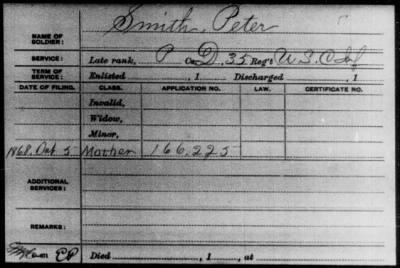 Smith, Peter
NAME OF SOLDIER:
SERVICE: Late rank, P Co. D, 35 Reg't U.S.C. Inf
TERM OF SERVICE: Enlisted , 1 Discharged , 1
DATE OF FILING. CLASS. APPLICATION NO. LAW. CERTIFICATE NO.
Invalid,
Widow,
Minor,
1868. Oct 5 Mother 166.225
ADDITIONAL SERVICES:
REMARKS:
Died , 1 , at